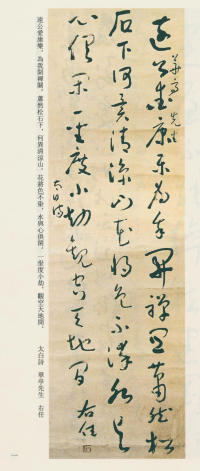 華亭先生
遠公愛康樂為我開禪關蕭然松
石下何異清涼山花將色不染水與
心俱閒一坐度小劫觀空天地間
太白詩
右任
遠公愛康樂，為我開禪關，蕭然松石下，何異清涼山，花將色不染，水與心俱閒，一坐度小劫，觀空天地間。　太白詩　華亭先生　右任
一